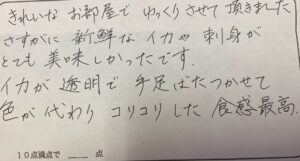 きれいなお部屋でゆっくりさせて頂きました
さすがに新鮮なイカや刺身が
とても美味しかったです.
イカが透明で手足ばたつかせて
色が代わりコリコリした食感最高.
10点満点で 点